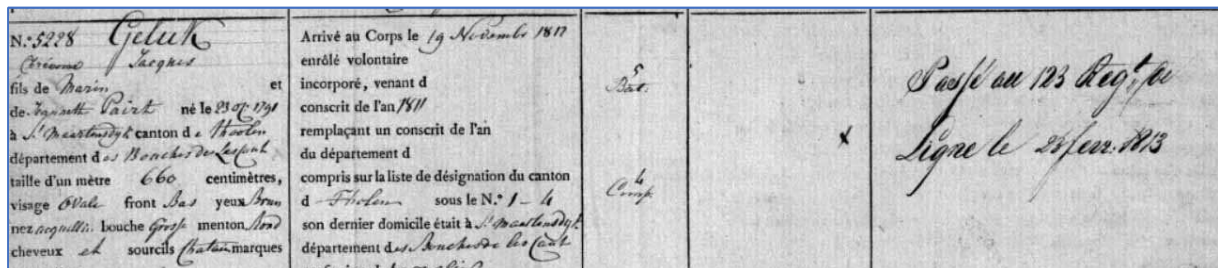 N.º 5228 Geluk
Jacques
fils de Marin et
de Pairt né le 23 1791
à St Maartensdyk canton de Tholen
département des Bouches de Lescaut
taille d'un mètre 660 centimètres,
visage Ovale front Bas yeux Brun
nez aquilli. bouche Grosse menton Rond
cheveux et sourcils Chatain marques
Arrivé au Corps le 19 Novembre 1811
enrôlé volontaire
incorporé, venant d
conscrit de l'an 1811
remplaçant un conscrit de l'an
du département d
compris sur la liste de désignation du canton
d Tholen sous le N.º 1 - 4
son dernier domicile était à St Maartensdyk
département des Bouches de
5
Bat.
4
Comp
x
Passé au 123 Regt. de
Ligne le 28 fevr. 1813